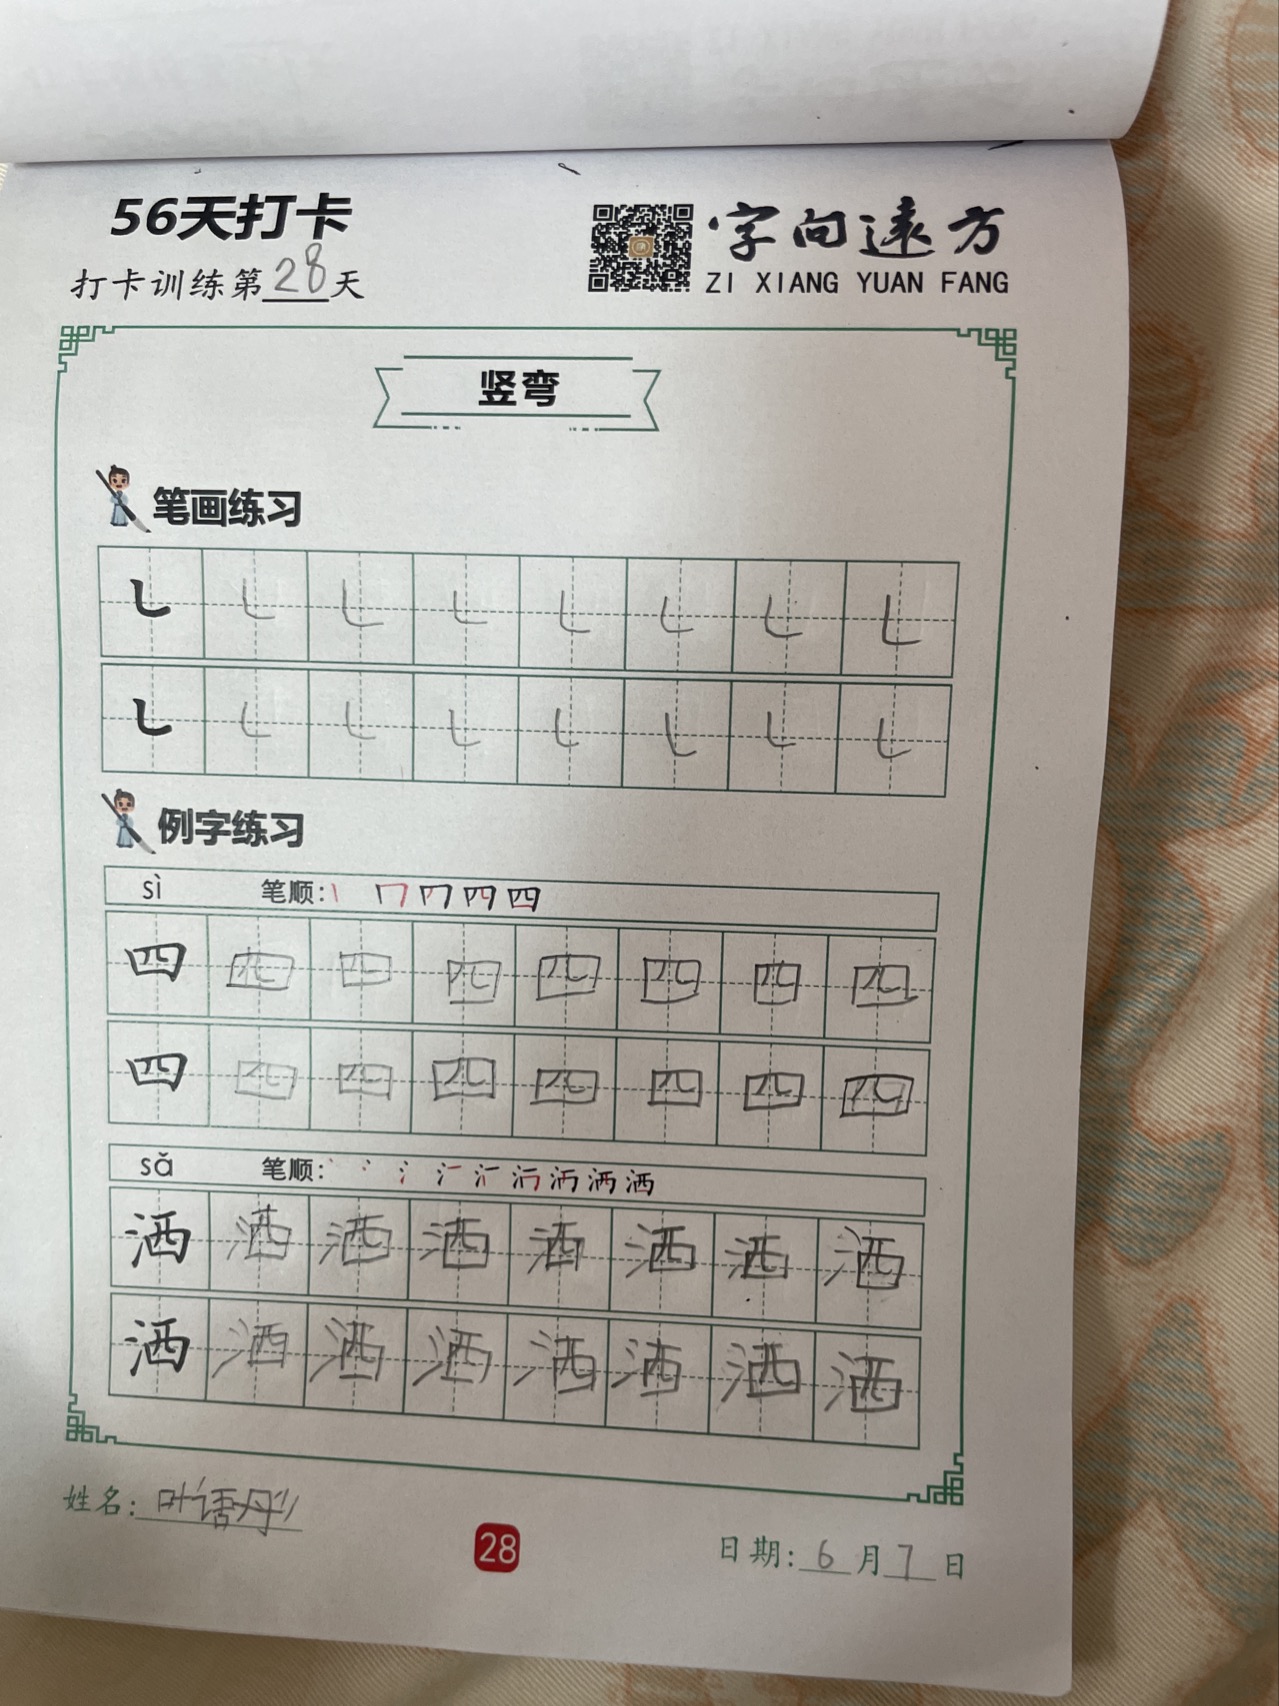 56天打卡
字向远方
打卡训练第28天
ZI XIANG YUAN FANG
竖弯
笔画练习
㇄ ㇄ ㇄ ㇄ ㇄ ㇄ ㇄ ㇄
㇄ ㇄ ㇄ ㇄ ㇄ ㇄ ㇄ ㇄
例字练习
sì 笔顺:
四 四 四 四 四 四 四 四
四 四 四 四 四 四 四 四
sǎ 笔顺:
洒 洒 洒 洒 洒 洒 洒 洒
洒 洒 洒 洒 洒 洒 洒 洒
姓名:叶语
28
日期:6月7日